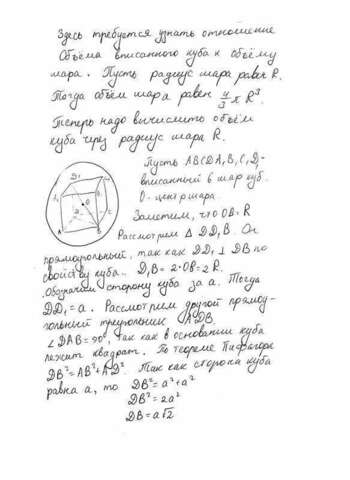 Здесь требуется узнать отношение
Объёма вписанного куба к объёму
шара. Пусть радиус шара равен R.
Тогда объём шара равен 4/3 π R³.
Теперь надо вычислить объём
куба через радиус шара R.
Пусть ABCDA₁B₁C₁D₁-
вписанный в шар куб.
O - центр шара.
Заметим, что OB=R
Рассмотрим △ DD₁B. Он
прямоугольный, так как DD₁ ⊥ DB по
свойству куба. D₁B = 2·OB = 2R.
Обозначим сторону куба за a. Тогда
DD₁ = a. Рассмотрим другой прямоу-
гольный треугольник ADB.
∠DAB = 90°, так как в основании куба
лежит квадрат. По теореме Пифагора
DB² = AB² + AD². Так как сторона куба
равна a, то DB² = a² + a²
DB² = 2a²
DB = a√2